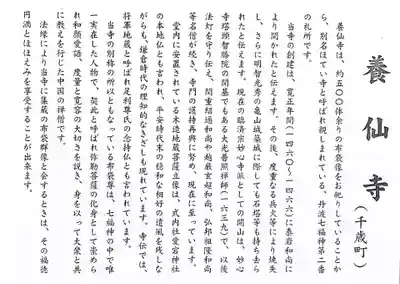 養仙寺
(千歳町)
養仙寺は、約五〇〇体余りの布袋像をお祀りしていることか
ら、別名ほてい寺と呼ばれ親しまれている、丹波七福神第二番
の札所です。
当寺の創建は、寛正年間(一四六〇〜一四六六)に泰岩和尚に
より開かれたと伝えます。その後、度重なる兵火等により焼失
し、さらに明智光秀の亀山城築城に際しても石塔等も持ち去ら
れたと伝えます。現在の臨済宗妙心寺派としての開山は、妙心
寺塔頭智勝院の開基でもある大光普照禅師(一六三九)で、以後
法灯を守り伝え、閑重紹通和尚や越巌玄超和尚、弘邦祖隆和尚
等名僧が続き、寺門の護持再興に努め、現在に至っています。
堂内に安置されている木造地蔵菩薩立像は、式内社愛宕神社
の本地仏とも言われ、平安時代末の穏和な相好の遺風を残しな
がらも、鎌倉時代の理知的なきざしも現れています。寺伝では、
将軍地蔵と呼ばれ足利尊氏の念持仏とも言われています。
当寺の別称の所以ともなっている布袋尊は、七福神の中で唯
一実在した人物で、契此と呼ばれ弥勒菩薩の化身として崇めら
れ和顔愛語、度量と寛容の大切さを説き、身を以って大衆と共
に教えを行じた中国の禅僧です。
法縁により当寺に集蔵の布袋群像と会するときは、その福徳
円満とほほえみを享受することが出来ます。